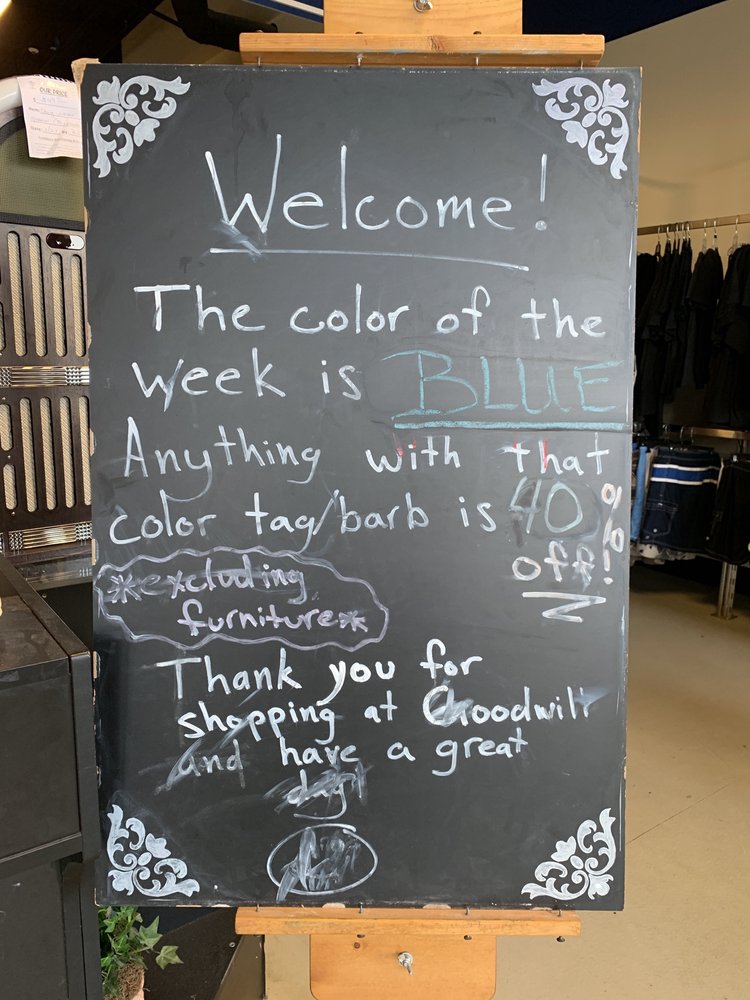 OUR PRICE
Welcome!
The color of the
week is BLUE
Anything with that
color tag/barb is 40%
off!
*excluding
furniture*
Thank you for
shopping at Goodwill
and have a great
day!